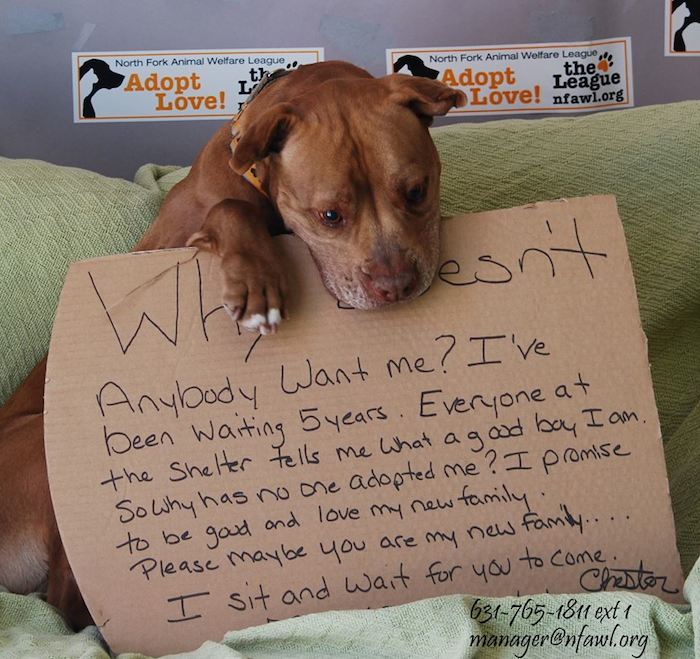 North Fork Animal Welfare League
Adopt the
Love!
North Fork Animal Welfare League
Adopt the
Love! League
nfawl.org
Why esn't
Anybody Want me? I've
been waiting 5 years. Everyone at
the Shelter tells me what a good boy I am.
So why has no one adopted me? I promise
to be good and love my new family.
Please maybe you are my new family....
I sit and wait for you to come.
Chester
631-765-1811 ext 1
manager@nfawl.org